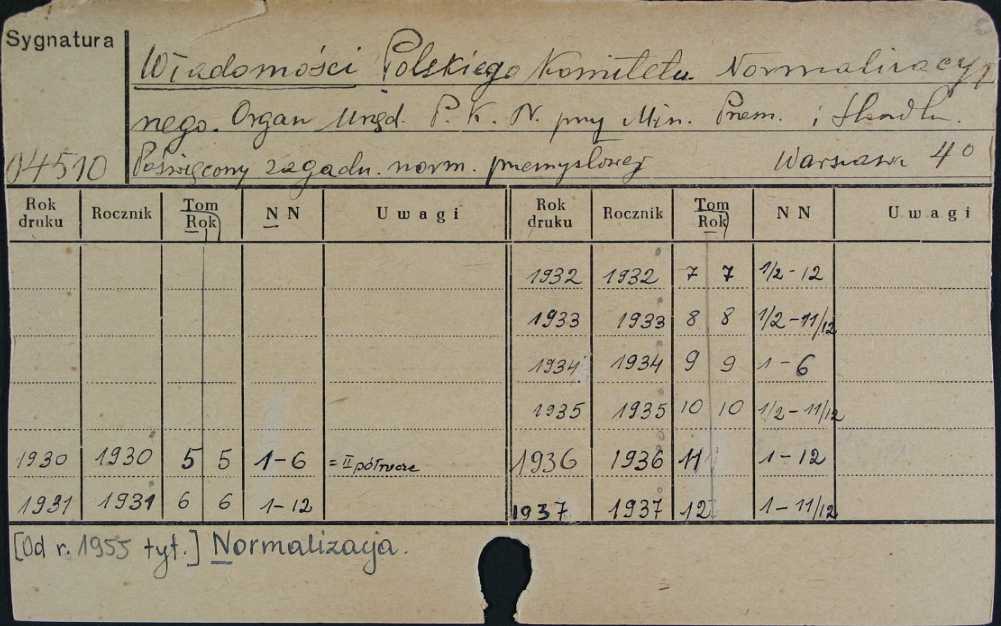 Sygnatura
Wiadomości Polskiego Komitetu Normalizacyj
nego. Organ Urzęd. P. K. N. przy Min. Przem. i Handlu.
04510 Poświęcony zagadn. norm. przemysłowej Warszawa 4o
Rok druku Rocznik Tom Rok N N Uwagi Rok druku Rocznik Tom Rok N N Uwagi
1932 1932 7 7 1/2 - 12
1933 1933 8 8 1/2 - 11/12
1934 1934 9 9 1 - 6
1935 1935 10 10 1/2 - 11/12
1930 1930 5 5 1 - 6 = II półrocze 1936 1936 11 1 - 12
1931 1931 6 6 1 - 12 1937 1937 12 1 - 11/12
[Od r. 1955 tyt.] Normalizacja.